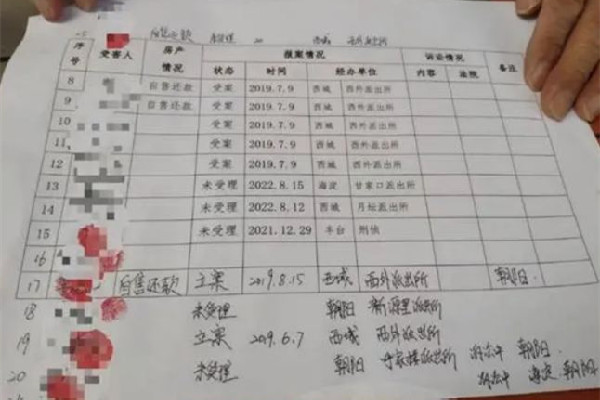 自售还款 未受理 20 西城 西外派出所
序号 受害人 房产情况 报案情况 诉讼情况 备注
状态 时间 经办单位 内容 法院
8 自售还款 受案 2019.7.9 西城 西外派出所
9 自售还款 受案 2019.7.9 西城 西外派出所
10 受案 2019.7.9 西城 西外派出所
11 受案 2019.7.9 西城 西外派出所
12 受案 2019.7.9 西城 西外派出所
13 未受理 2022.8.15 海淀 甘家口派出所
14 未受理 2022.8.12 西城 月坛派出所
15 未受理 2021.12.29 丰台 刑侦
16
17 自售还款 立案 2019.8.15 西城 西外派出所 朝阳
18 未受理 朝阳 新源里派出所
19 立案 2019.6.7 西城 西外派出所 朝阳
20 未受理 朝阳 派出所 朝阳